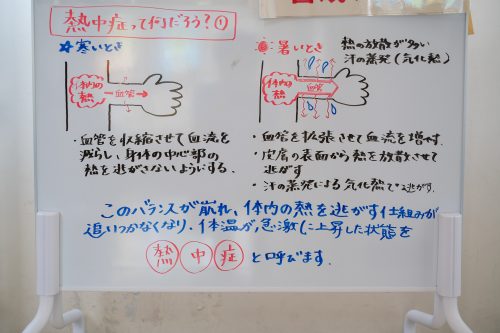 熱中症って何だろう?①
☆寒いとき
体内の熱
血管
・血管を収縮させて血流を
減らし、身体の中心部の
熱を逃がさないようにする。
暑いとき
熱の放散が多い
汗の蒸発(気化熱)
体内の熱
血管
・血管を拡張させて血流を増やす。
・皮膚の表面から熱を放散させて
逃がす
・汗の蒸発による気化熱で逃がす。
このバランスが崩れ、体内の熱を逃がす仕組みが
追いつかなくなり、体温が急激に上昇した状態を
熱中症と呼びます。